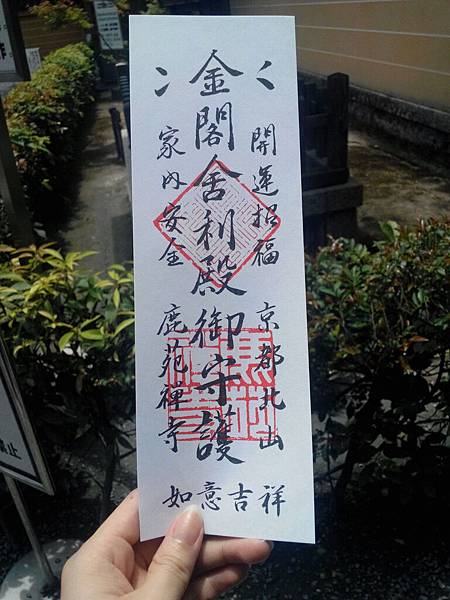 開運招福 京都北山
金閣舍利殿御守護
家内安全 鹿苑禅寺
如意吉祥
止